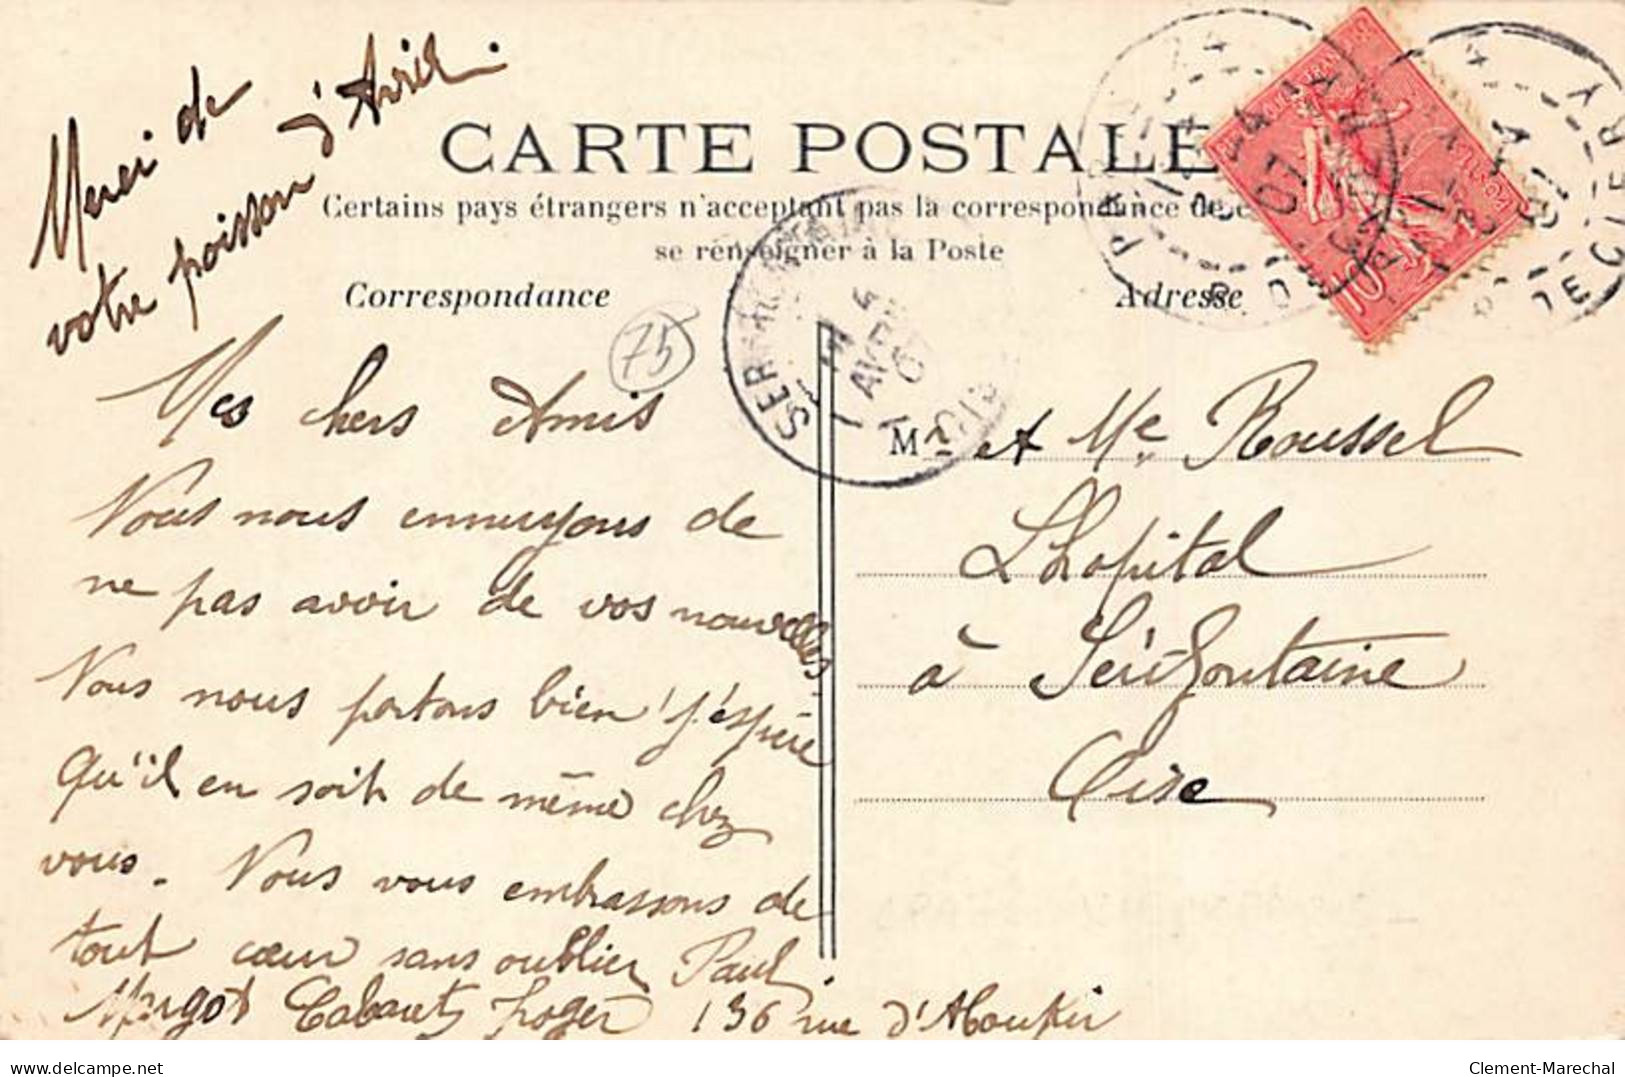 Merci de
votre poisson d'Avril.
CARTE POSTALE
Certains pays étrangers n'acceptent pas la correspondance de c
se renseigner à la Poste
Correspondance
Adresse
75
Mes chers Amis
Nous nous ennuyons de
ne pas avoir de vos nouvelles.
Nous nous portons bien j'espère
qu'il en soit de même chez
vous. Nous vous embrassons de
tout cœur sans oublier Paul.
Margot Roger 136 rue d'Aboukir
Mr et Me Roussel
Lhopital
à Serifontaine
Oise
10
4
AVRIL
07
OISE
Clement-Marechal